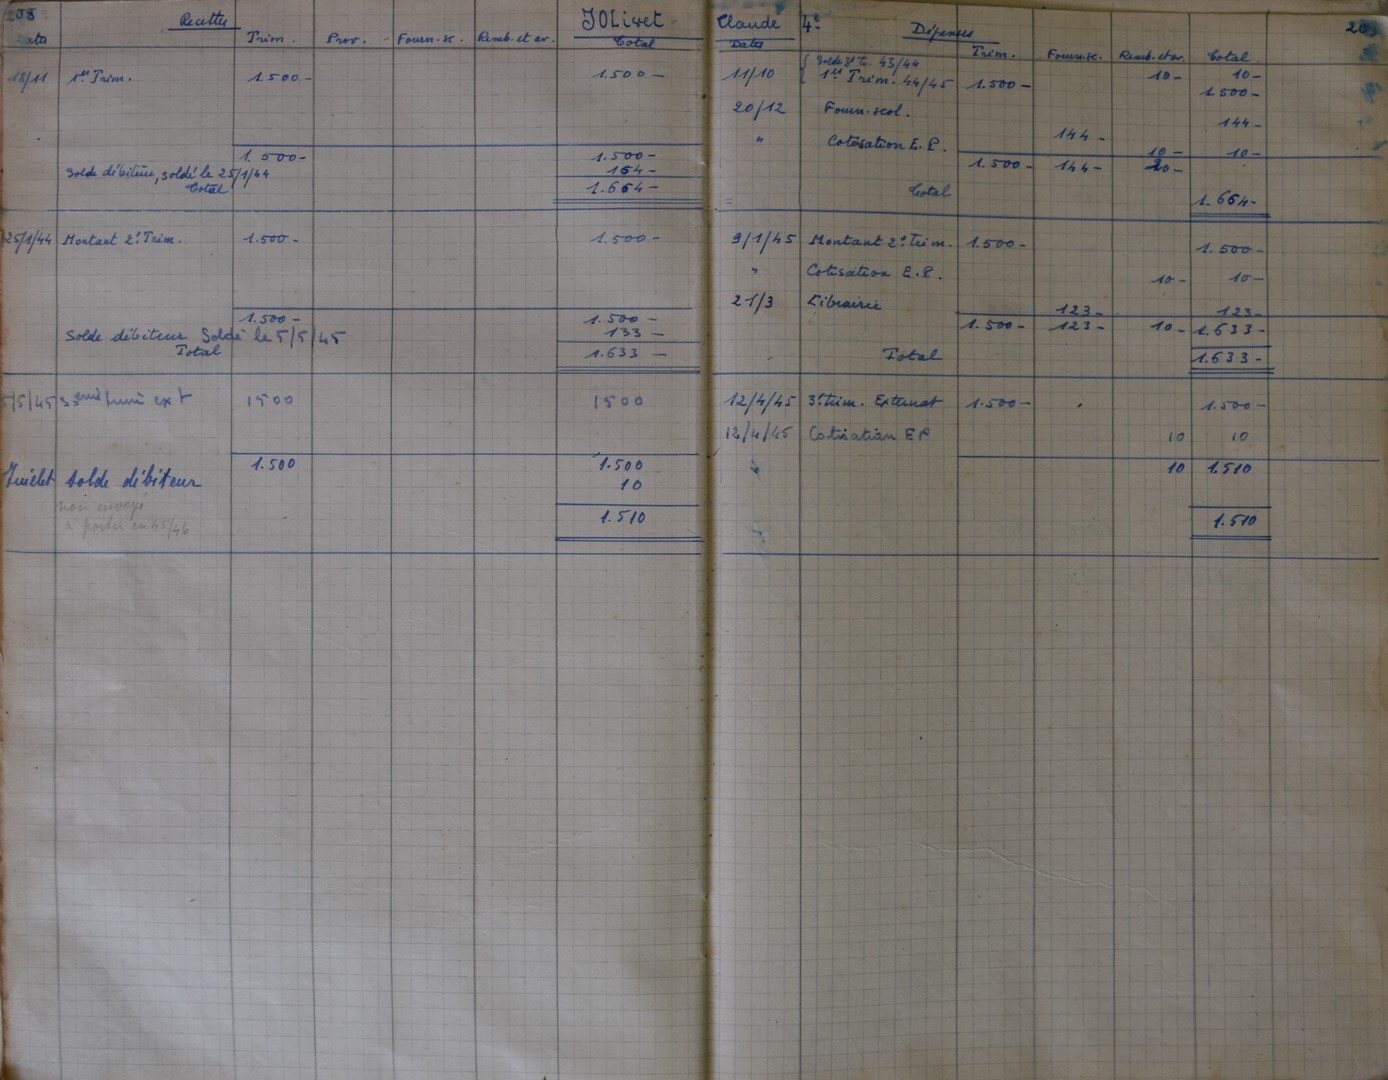 208 Recettes JOLivet
Dates Trim. Prov. Fourn. sc. Remb. et av. Total
18/11 1er Trim. 1.500- 1.500-
1.500- 1.500-
Solde débiteur, soldé le 25/1/44 164-
Total 1.664-
25/1/44 Montant 2e Trim. 1.500- 1.500-
1.500- 1.500-
Solde débiteur Soldé le 5/5/45 133-
Total 1.633-
5/5/45 ext 1500 1500
1.500 1.500
Juillet Solde débiteur 10
non envoyé
à porter en 45/46 1.510
Claude 4e Dépenses
Dates Trim. Fourn. sc. Remb. et av. Total
Solde 3e tr. 43/44 10- 10-
11/10 1er Trim. 44/45 1.500- 1.500-
20/12 Fourn. scol. 144- 144-
" Cotisation E.P. 10- 10-
1.500- 144- 20-
Total 1.664-
9/1/45 Montant 2e Trim. 1.500- 1.500-
" Cotisation E.P. 10- 10-
21/3 Librairie 123- 123-
1.500- 123- 10- 1.633-
Total 1.633-
12/4/45 3e trim. Externat 1.500- 1.500-
12/4/45 Cotisation EP 10 10
10 1.510
1.510